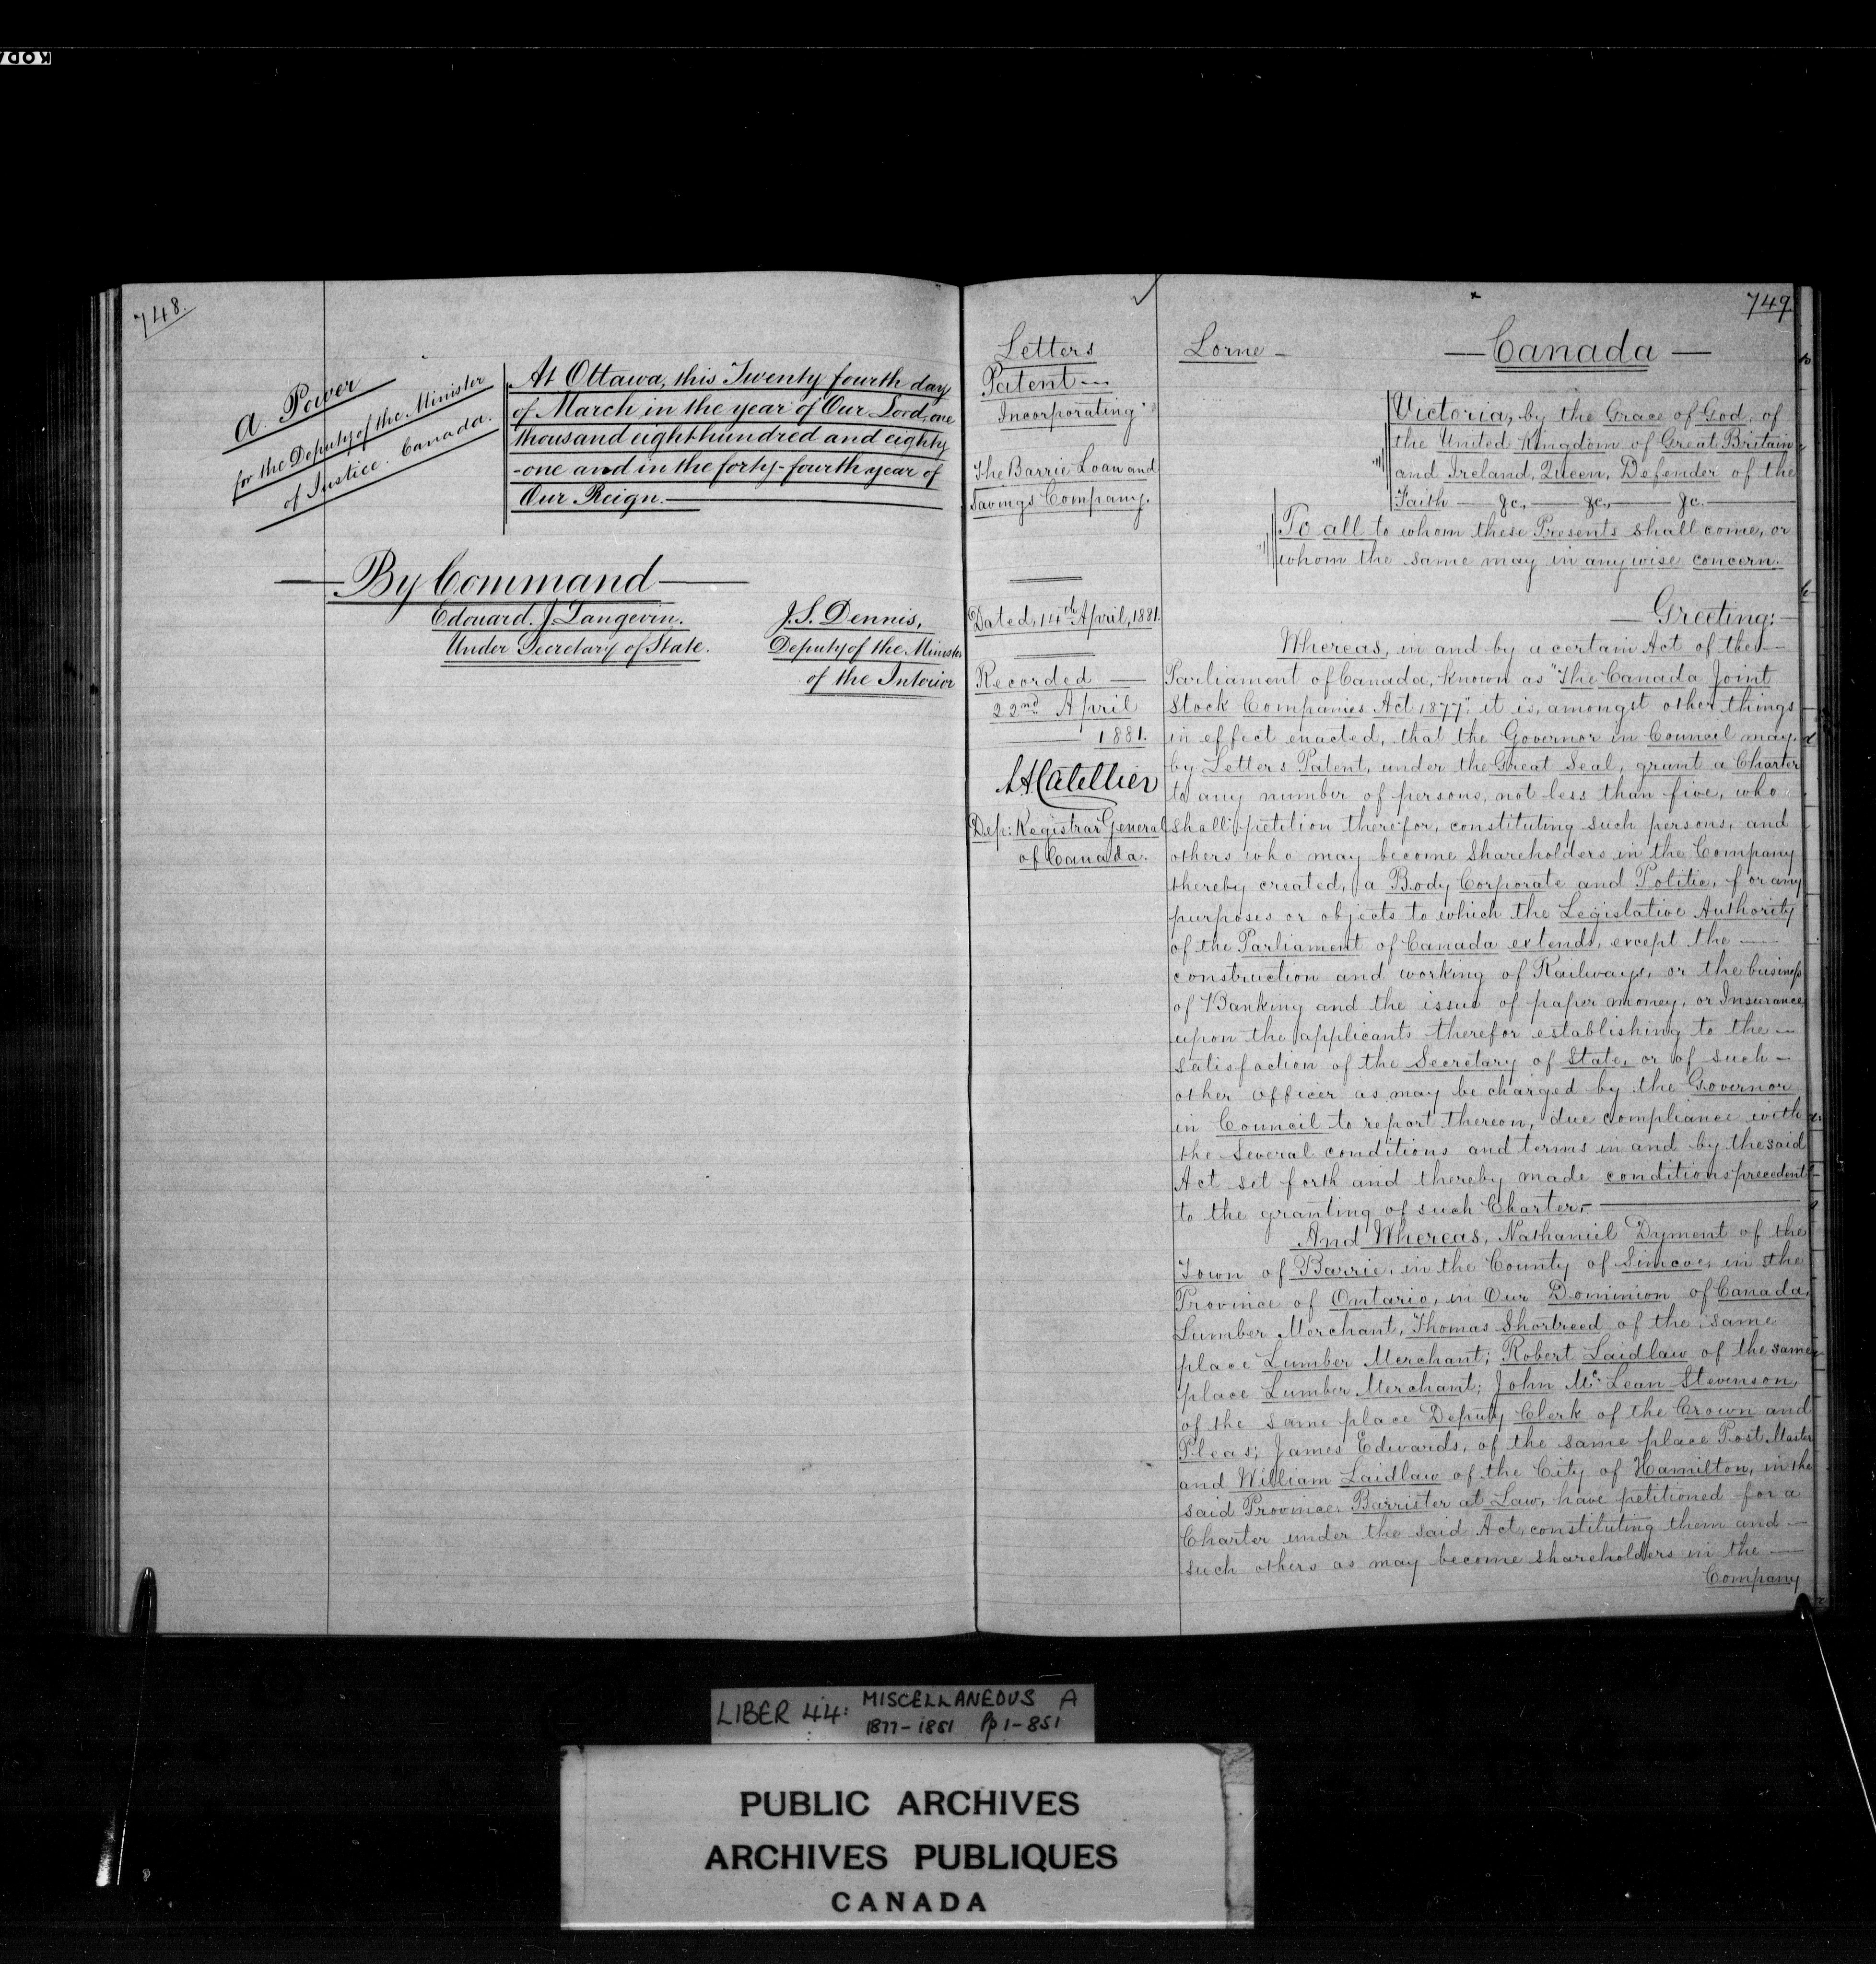 748.
A. Power
for the Deputy of the Minister
of Justice. Canada.
At Ottawa, this Twenty fourth day
of March in the year of Our Lord, one
thousand eight hundred and eighty
-one and in the forty-fourth year of
Our Reign.
By Command
Edouard. J. Langevin.
Under Secretary of State.
J.S. Dennis,
Deputy of the Minister
of the Interior
749.
Letters
Patent
Incorporating
The Barrie Loan and
Savings Company.
Dated, 14th April, 1881.
Recorded
22nd April
1881.
Catellier
Dep: Registrar General
of Canada.
Lorne -
Canada
Victoria, by the Grace of God, of
the United Kingdom of Great Britain
and Ireland, Queen, Defender of the
Faith — &c, — &c, — &c.
To all to whom these Presents shall come, or
whom the same may in anywise concern.
Greeting:
Whereas, in and by a certain Act of the
Parliament of Canada, known as "The Canada Joint
Stock Companies Act 1877", it is, amongst other things
in effect enacted, that the Governor in Council may,
by Letters Patent, under the Great Seal, grant a Charter
to any number of persons, not less than five, who
shall petition therefor, constituting such persons, and
others who may become Shareholders in the Company
thereby created, a Body Corporate and Politic, for any
purposes or objects to which the Legislative Authority
of the Parliament of Canada extends, except the
construction and working of Railways, or the business
of Banking and the issue of paper money, or Insurance,
upon the applicants therefor establishing to the
satisfaction of the Secretary of State, or of such
other Officer as may be charged by the Governor
in Council to report thereon, due compliance with
the Several conditions and terms in and by the said
Act set forth and thereby made conditions precedent
to the granting of such Charter,
And Whereas, Nathaniel Dyment of the
Town of Barrie, in the County of Simcoe, in the
Province of Ontario, in Our Dominion of Canada,
Lumber Merchant, Thomas Shortreed of the same
place Lumber Merchant; Robert Laidlaw of the same
place Lumber Merchant; John Mc Lean Stevenson,
of the same place Deputy Clerk of the Crown and
Pleas; James Edwards, of the same place Post Master
and William Laidlaw of the City of Hamilton, in the
said Province. Barrister at Law, have petitioned for a
Charter under the said Act, constituting them and
such others as may become shareholders in the
Company
LIBER 44: MISCELLANEOUS A
1877-1881 Pp 1-851
PUBLIC ARCHIVES
ARCHIVES PUBLIQUES
CANADA